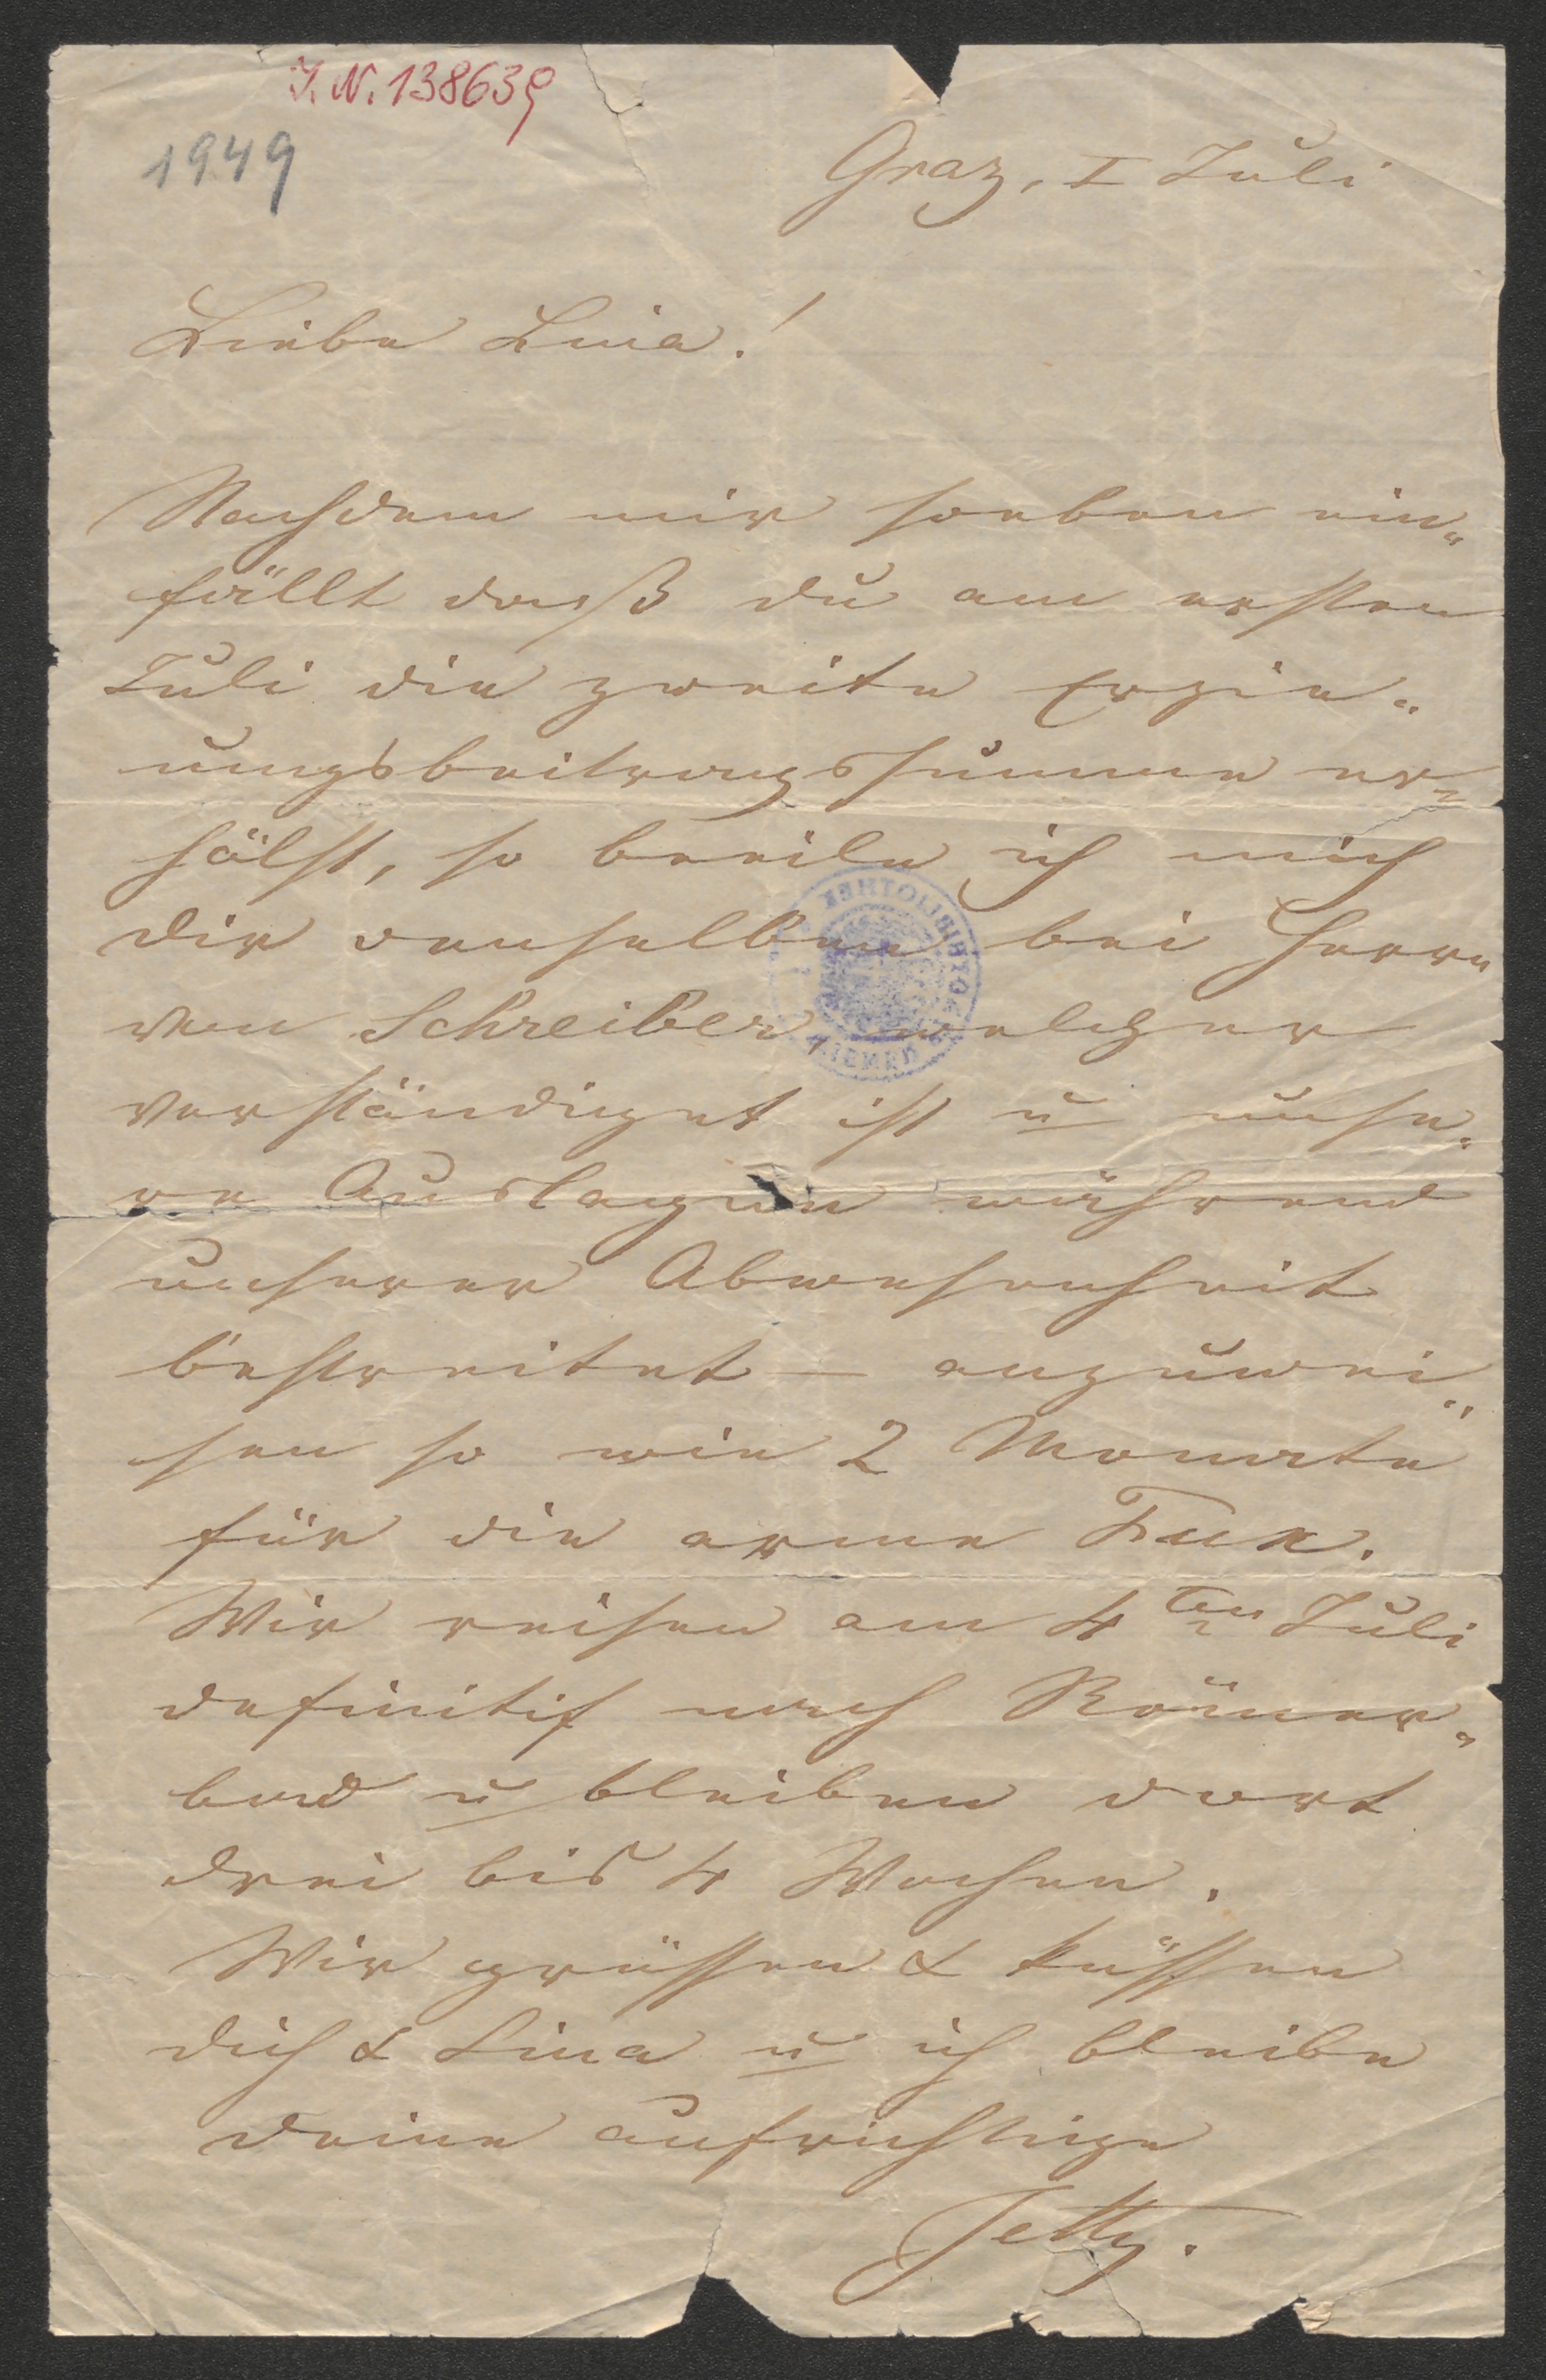 I. N. 138639
1949
Graz, I Juli
Liebe Luia!
Nachdem mir soeben ein„
fällt daß du am ersten
Juli die zweite Erzie„
ungsbeitragssumme er„
hälst, so beeile ich mich
dir denselben bei Herrn
von Schreiber, welcher
verständiget ist u unse„
re Auslagen während
unserer Abwesenheit
bestreitet – anzuwei„
sen so wie 2 Monate
für die arme Fux.
Wir reisen am 4ten Juli
definitif nach Römer„
bad u bleiben dort
drei bis 4 Wochen.
Wir grüssen & küssen
dich & Lina u ich bleibe
deine aufrichtige
Jetty.